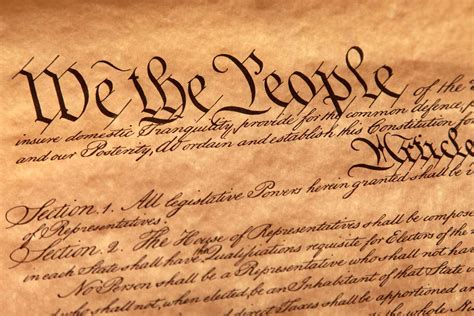 We the People of the
insure domestic Tranquility, provide for the common defence,
and our Posterity, do ordain and establish this Constitution fo
Article
Section. 1. All legislative Powers herein granted shall be
of Representatives.
Section. 2. The House of Representatives shall be compos
in each State shall have the Qualifications requisite for Electors of the
No Person shall be a Representative who shall not hav
who shall not, when elected, be an Inhabitant of that State
and direct Taxes shall be apportioned